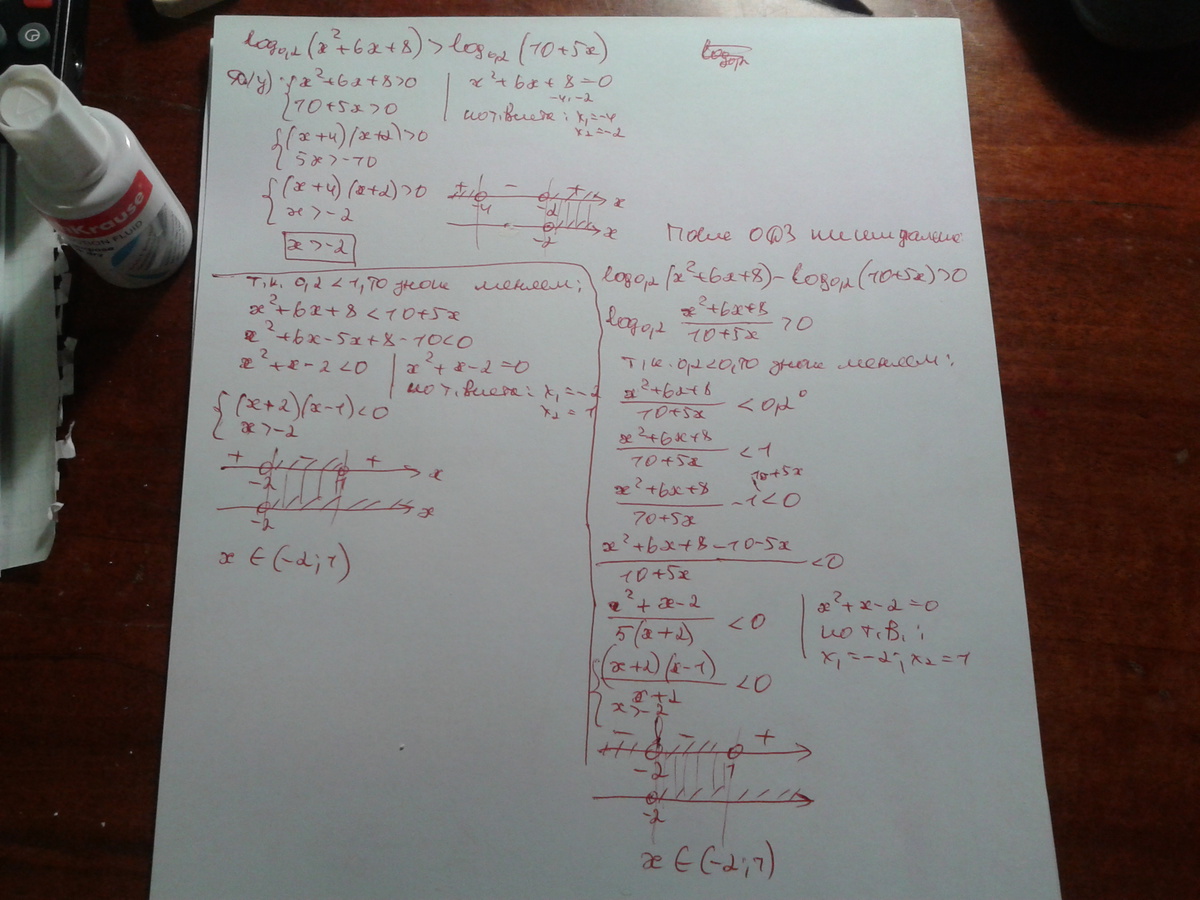 log₀,₂(x²+6x+8)>log₀,₂(10+5x)
Д/у) {x²+6x+8>0
10+5x>0
x²+6x+8=0
-4, -2
по т. Виета: x₁=-4
x₂=-2
{(x+4)(x+2)>0
5x>-10
{(x+4)(x+2)>0
x>-2
+ - + x
-4 -2
x
-2
x>-2
т.к. 0,2<1, то знак меняем:
x²+6x+8<10+5x
x²+6x-5x+8-10<0
x²+x-2<0 | x²+x-2=0
по т. Виета: x₁=-2
x₂=1
{(x+2)(x-1)<0
x>-2
+ - + x
-2 1
x
-2
x∈(-2;1)
log₀,₂
После ОДЗ пишем дальше:
log₀,₂(x²+6x+8)-log₀,₂(10+5x)>0
log₀,₂ (x²+6x+8)/(10+5x) >0
т.к. 0,2<0, то знак меняем:
(x²+6x+8)/(10+5x) <0,2⁰
(x²+6x+8)/(10+5x) <1
10+5x
(x²+6x+8)/(10+5x) -1<0
(x²+6x+8-10-5x)/(10+5x) <0
(x²+x-2)/(5(x+2)) <0
x²+x-2=0
по т.В.:
x₁=-2; x₂=1
{((x+2)(x-1))/(x+2) <0
x>-2
- - +
-2 1
-2
x∈(-2;1)
Krause
ION FLUID